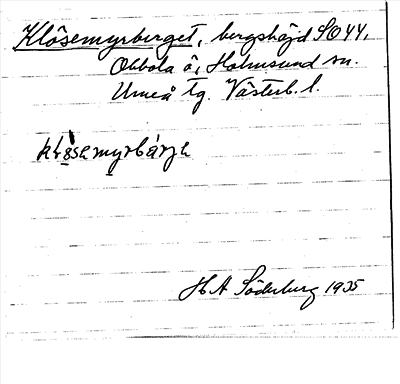 Klösemyrberget, bergshöjd SO 44,
Obbola ö, Holmsund sn.
Umeå tg. Västerb. l.
H A Söderberg 1935